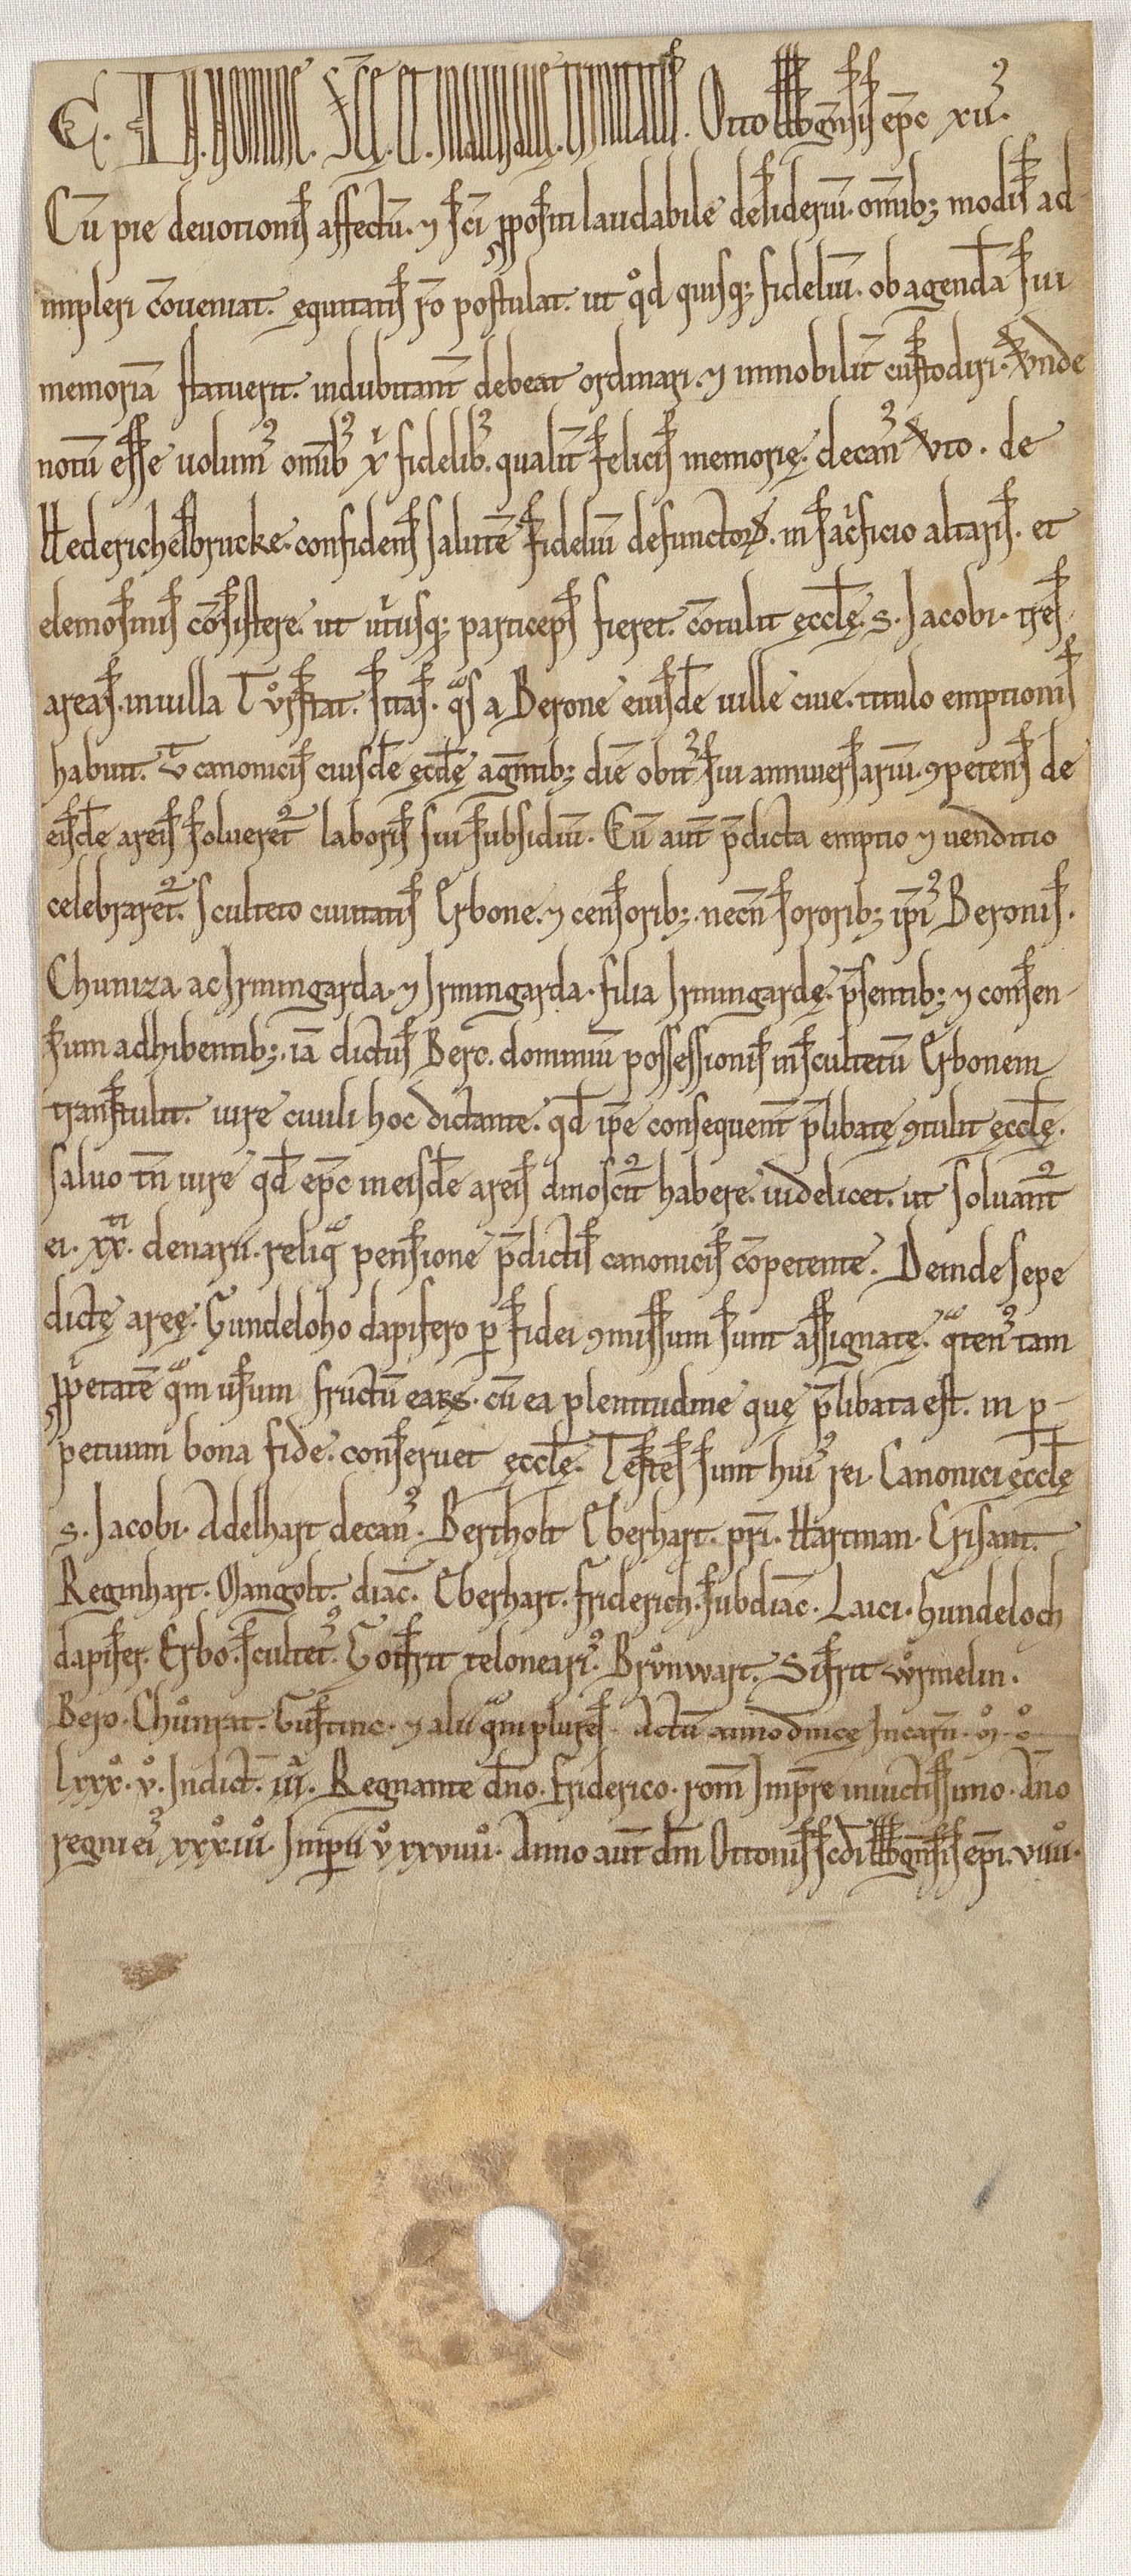 C. IN. NOMINE. SCE̅. ET. INDIVIDUE̜. TRINITATIS. Otto Bbgn̅sis ep̅c xii᷒.
Cu̅ pie deuotionis affectu̅. ⁊ sc̅i ꝓpositi laudabile desideriu̅. om̅ib; modis ad-
impleri co̅ueniat. ęquitatis ro̅ postulat. ut qd̊ quisq; fideliu̅. ob agenda̅ sui
memoria̅ statuerit. indubitant̅ debeat ordinari. ⁊ inmobilit̅ custodiri. Vnde
notu̅ esse uolum᷒ om̅ib᷒ xͥ fidelib᷒. qualit̅ felicis memorię. decan᷒ Vto. de
Hederichesbrucke. confidens salute̅ fideliu̅ defunctoꝝ. in sac̍ficio altaris. et
elemosinis co̅sistere. ut ut̍usq; particeps fieret. co̅tulit ęccl̅ę. s. Jacobi. tres.
areas. in uilla Tv̊rstat. sitas. qᵃs a Berone eiusde̅ uille ciue. titulo emptionis
habuit. Vᵗ canonicis eiusde̅ ęccl̅ę agn̅tib; die̅ obit᷒ sui anniuersariu̅. ꝯpetens de
eisde̅ areis solueret᷑ laboris sui subsidiu̅. Cu̅ aut̅ p̅dicta emptio ⁊ uenditio
celebraret᷑. Sculteto ciuitatis Erbone. ⁊ censorib;. necn̅ sororib; ip̅i᷒ Beronis.
Chuniza. ac Irmingarda. ⁊ Irmingarda. filia Irmingardę. p̅sentib; ⁊ consen-
sum adhibentib;. ia̅ dictus Bero. dominiu̅ possessionis in scultetu̅ Erbonem
transtulit. iure ciuili hoc dictante. qd̅ ip̅e consequent̅ p̅libatę ꝯtulit ęccl̅ę.
saluo tn̅ iure qd̅ ep̅c in eisde̅ areis dinoscit᷑ habere. uidelicet. ut soluant᷑
ei. xxͭͥ. denarii. reliqᵃ pensione p̅dictis canonicis co̅petente. Deinde sepe
dictę aręę. Gundeloho dapifero ꝑ fidei ꝯmissum sunt assignatę. qᵃten᷒ tam
ꝓp̍etate̅ qᵃm usum fructu̅ eaꝝ. cu̅ ea plenitudine quę p̅libata est. in p̲-
petuum bona fide. conseruet ęccl̅ę. Testes sunt hui᷒ rei. Canonici ęccl̅ę
s. Jacobi. Adelhart decan᷒. Bertholt Eberhart. pr̅i. Hartman. Crisant.
Reginhart. Mangolt. diac̅. Eberhart. Friderich. subdiac̅. Laici. Gundeloch
dapifer. Erbo. scultet᷒. Gotfrit teloneari᷒. Brv̊nwart. Sifrit wͦrmelin.
Bero. Chůnrat. Gustinc. ⁊ alii qᵃm plures. Actu̅ anno dn̅icę Incarn̅. mͦ. cͦ.
lxxxͦ. vͦ. Indict̅. iiiᵃ. Regnante dn̅o. Friderico. rom̅ Imp̅re inuictissimo. An̅o
regni ei᷒ xxxͦiiiͦ. Imperii vͦ xxviiiiͦ. Anno aut̅ dn̅i Ottonis scd̅i Bbgn̅sis ep̅i. viiiiͦ.